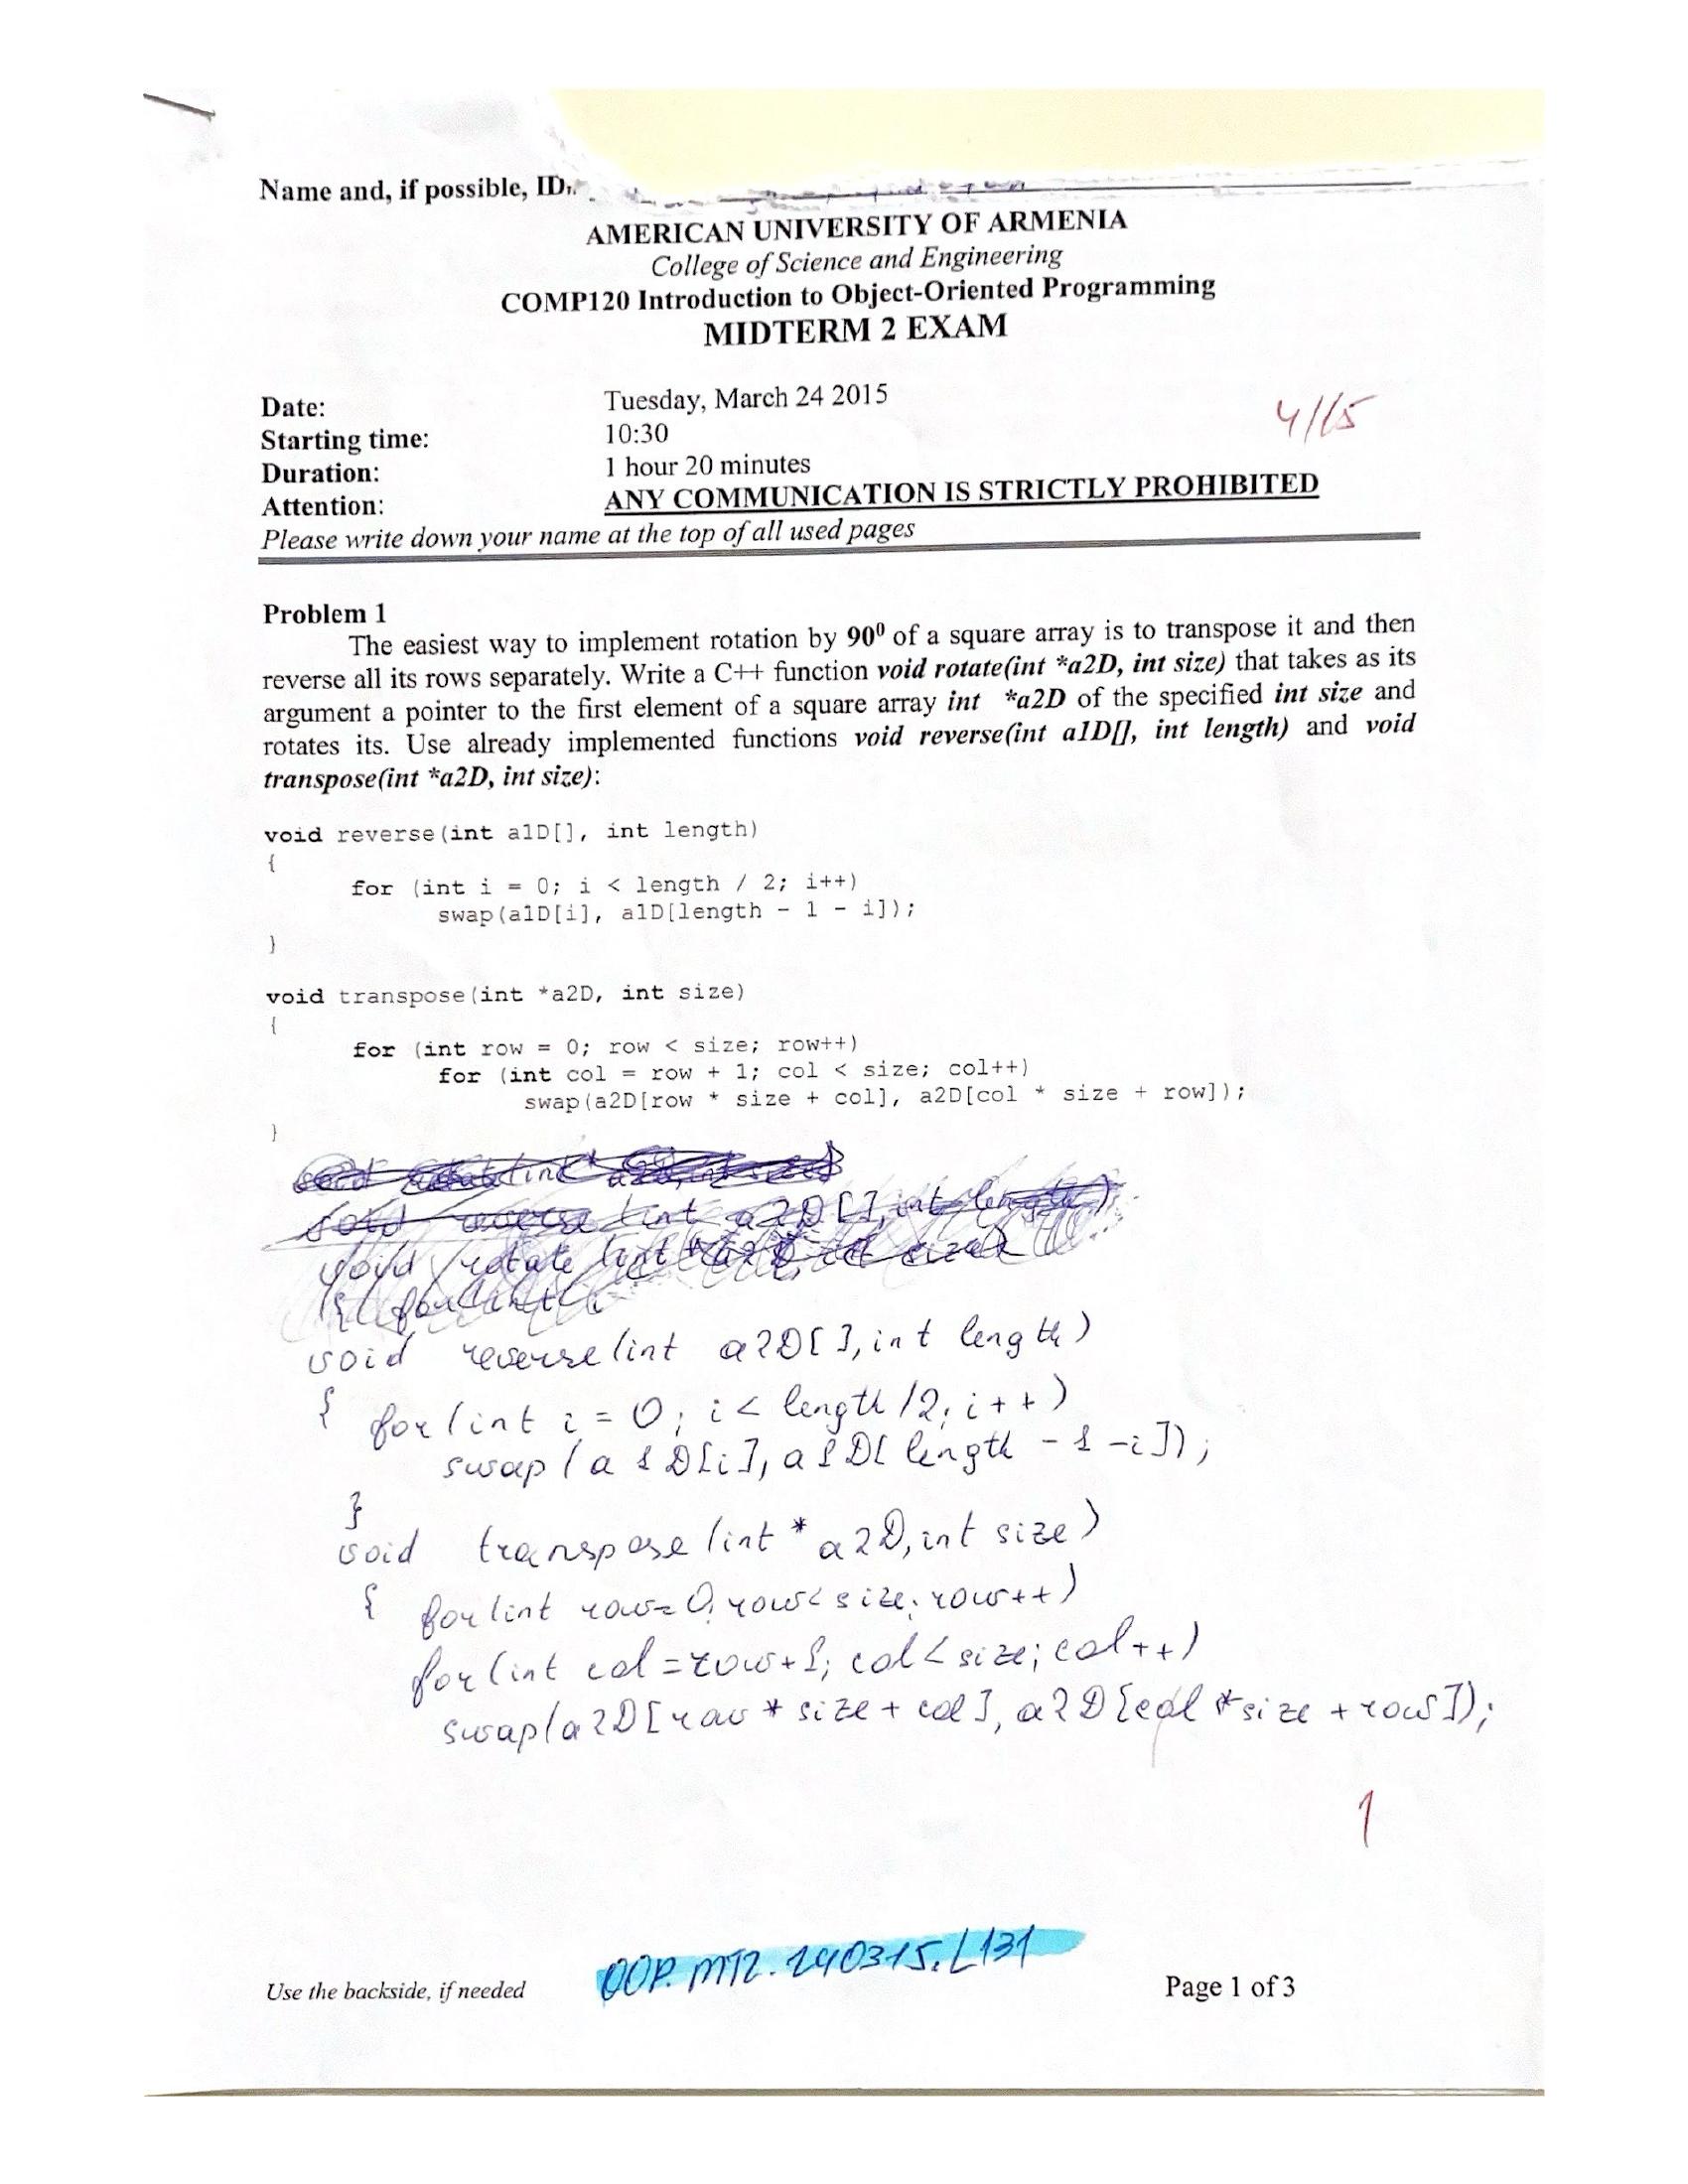 Name and, if possible, ID
AMERICAN UNIVERSITY OF ARMENIA
College of Science and Engineering
COMP120 Introduction to Object-Oriented Programming
MIDTERM 2 EXAM
Date: Tuesday, March 24 2015
4/15
Starting time: 10:30
Duration: 1 hour 20 minutes
Attention: ANY COMMUNICATION IS STRICTLY PROHIBITED
Please write down your name at the top of all used pages
Problem 1
The easiest way to implement rotation by 90⁰ of a square array is to transpose it and then
reverse all its rows separately. Write a C++ function void rotate(int *a2D, int size) that takes as its
argument a pointer to the first element of a square array int *a2D of the specified int size and
rotates its. Use already implemented functions void reverse(int a1D[], int length) and void
transpose(int *a2D, int size):
void reverse(int a1D[], int length)
{
for (int i = 0; i < length / 2; i++)
swap(a1D[i], a1D[length - 1 - i]);
}
void transpose(int *a2D, int size)
{
for (int row = 0; row < size; row++)
for (int col = row + 1; col < size; col++)
swap(a2D[row * size + col], a2D[col * size + row]);
}
void reverse (int a2D[], int length)
void rotate (int *a2D, int size)
{ for (int i
void reverse (int a2D[], int length)
{ for (int i = 0; i < length /2; i++)
swap (a1D[i], a1D[length - 1 - i]);
}
void transpose (int * a2D, int size)
{ for (int row = 0; row < size; row++)
for (int col = row + 1; col < size; col++)
swap(a2D[row * size + col], a2D[col * size + row]);
1
OOP. MT2. 240315. L131
Use the backside, if needed
Page 1 of 3